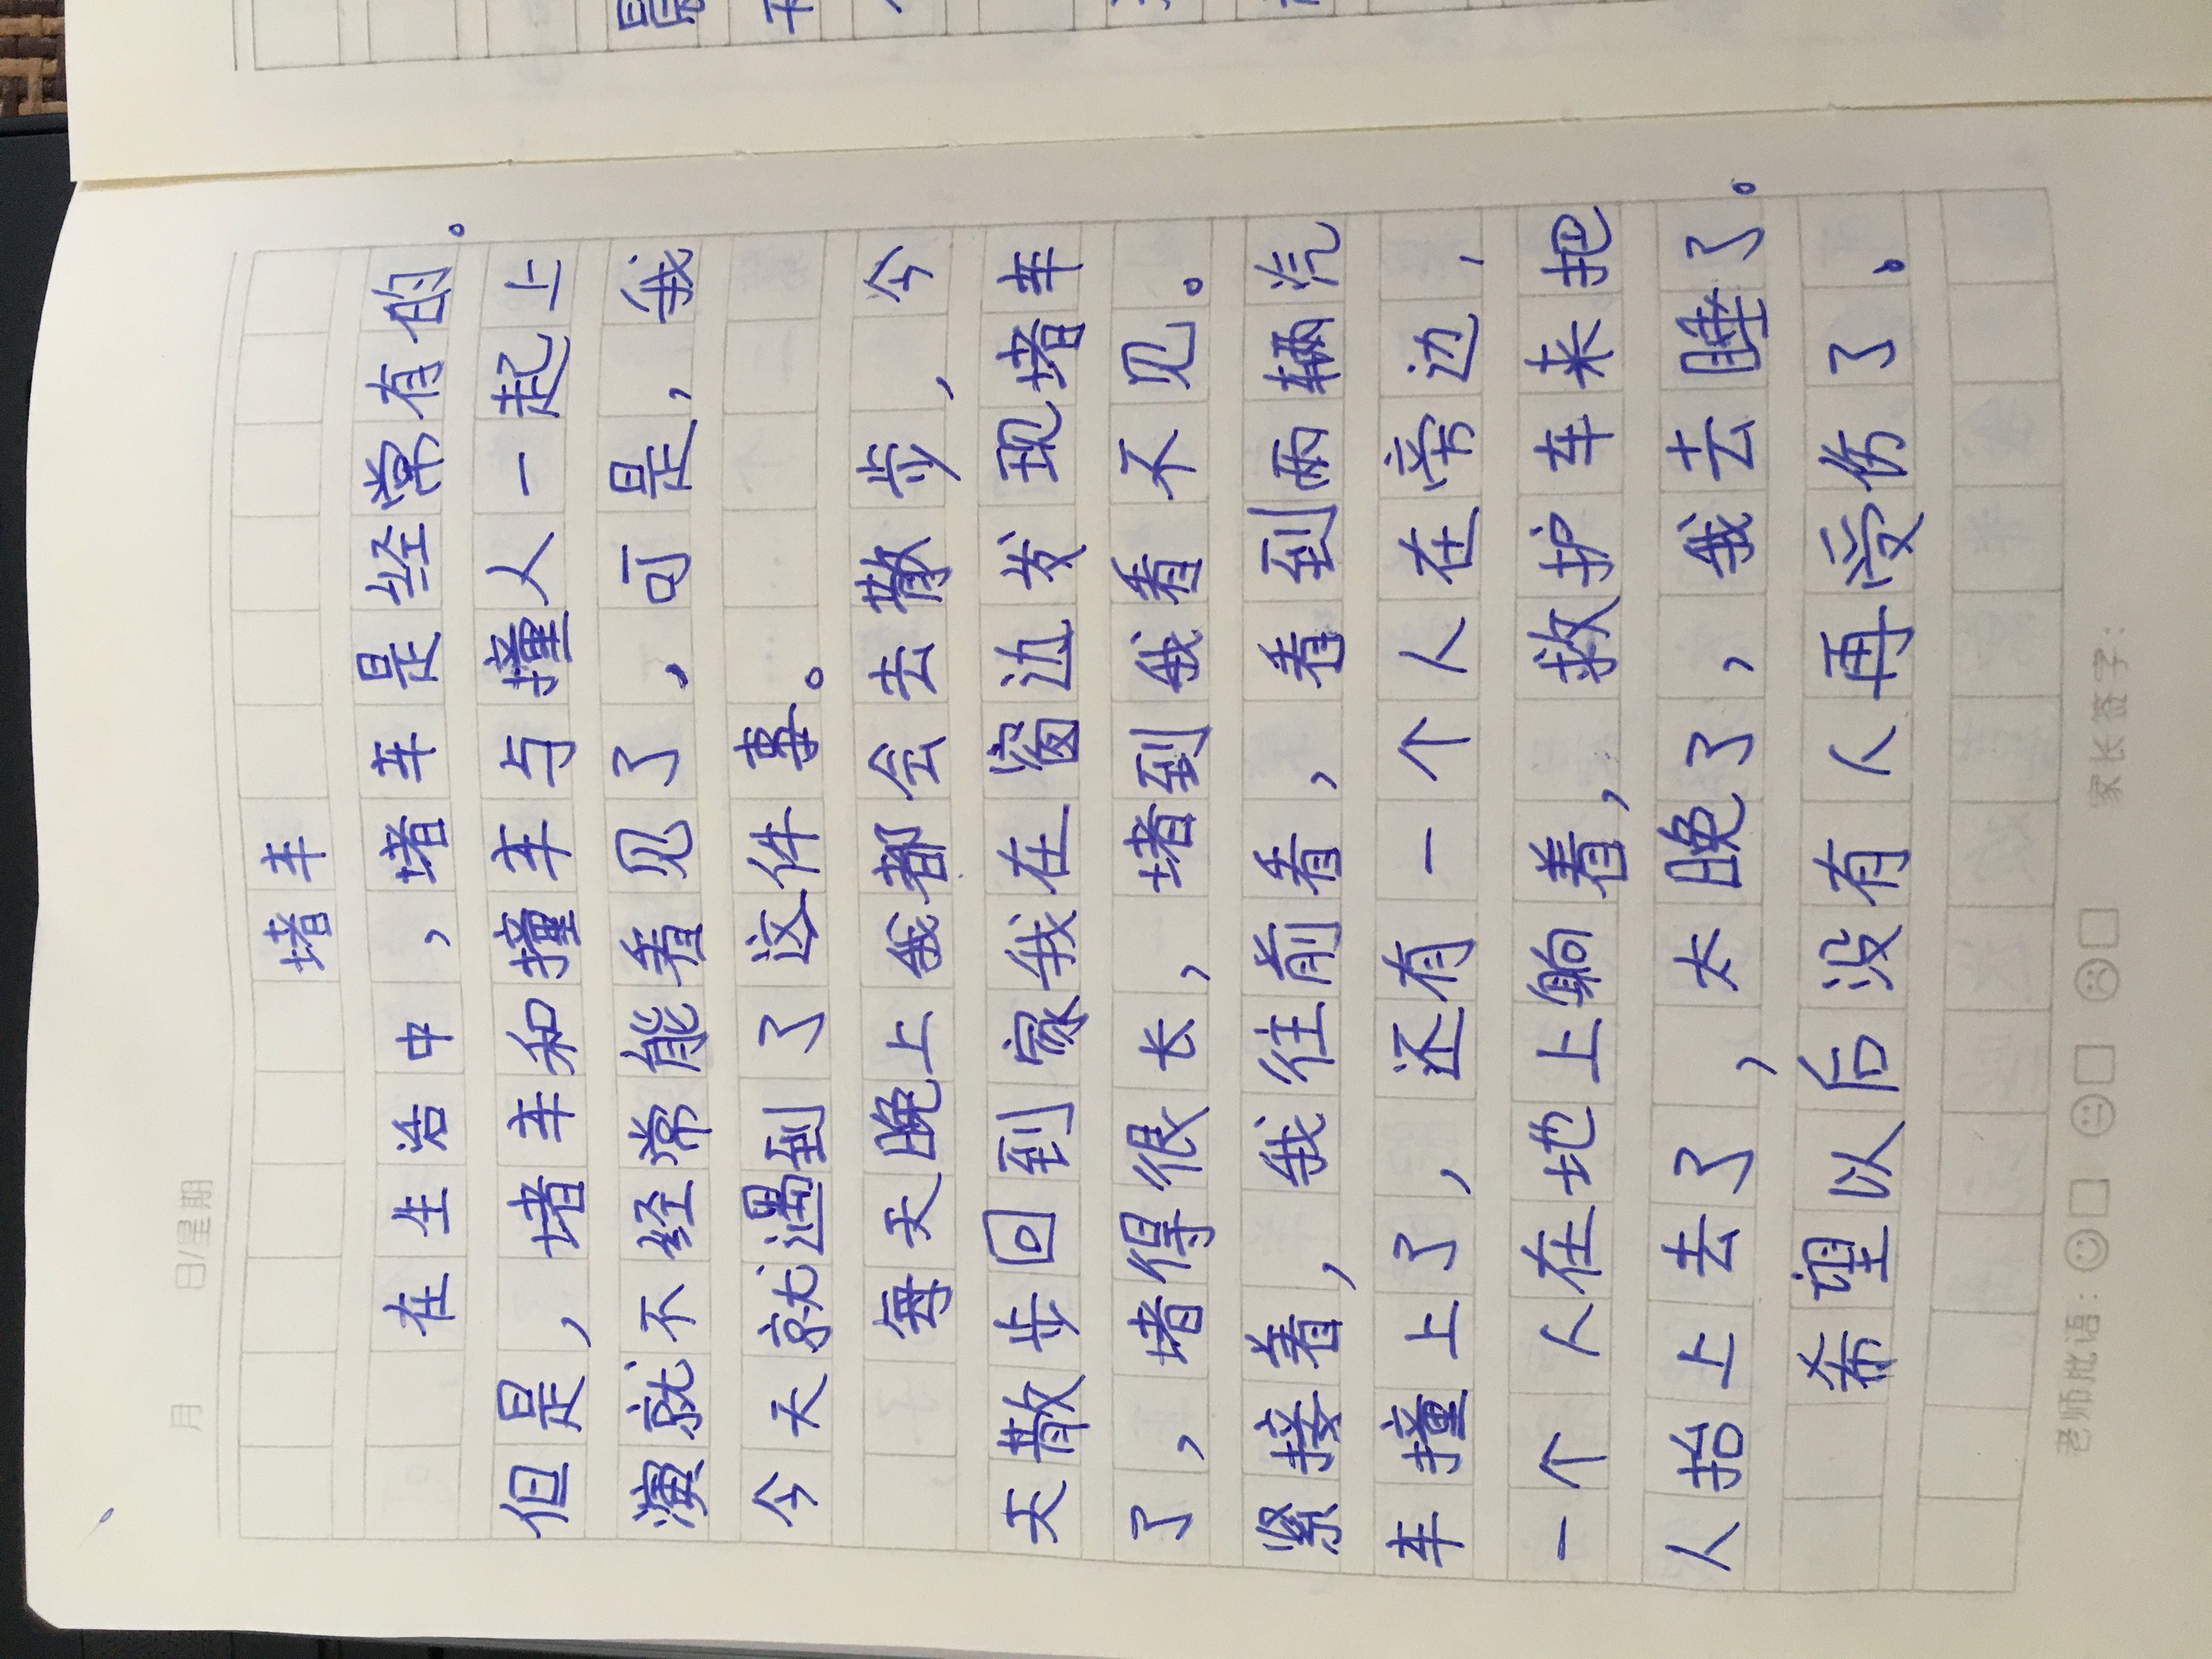 月 日/星期
堵车
在生活中，堵车是经常有的。
但是，堵车和撞车与撞人一起上
演就不经常能看见了，可是，我
今天就遇到了这件事。
每天晚上我都会去散步，今
天散步回到家我在窗边发现堵车
了，堵得很长，堵到我看不见。
紧接着，我往前看，看到两辆汽
车撞上了，还有一个人在旁边，
一个人在地上躺着，救护车来把
人抬上去了，太晚了，我去睡了。
希望以后没有人再受伤了。
老师批语： 家长签字：